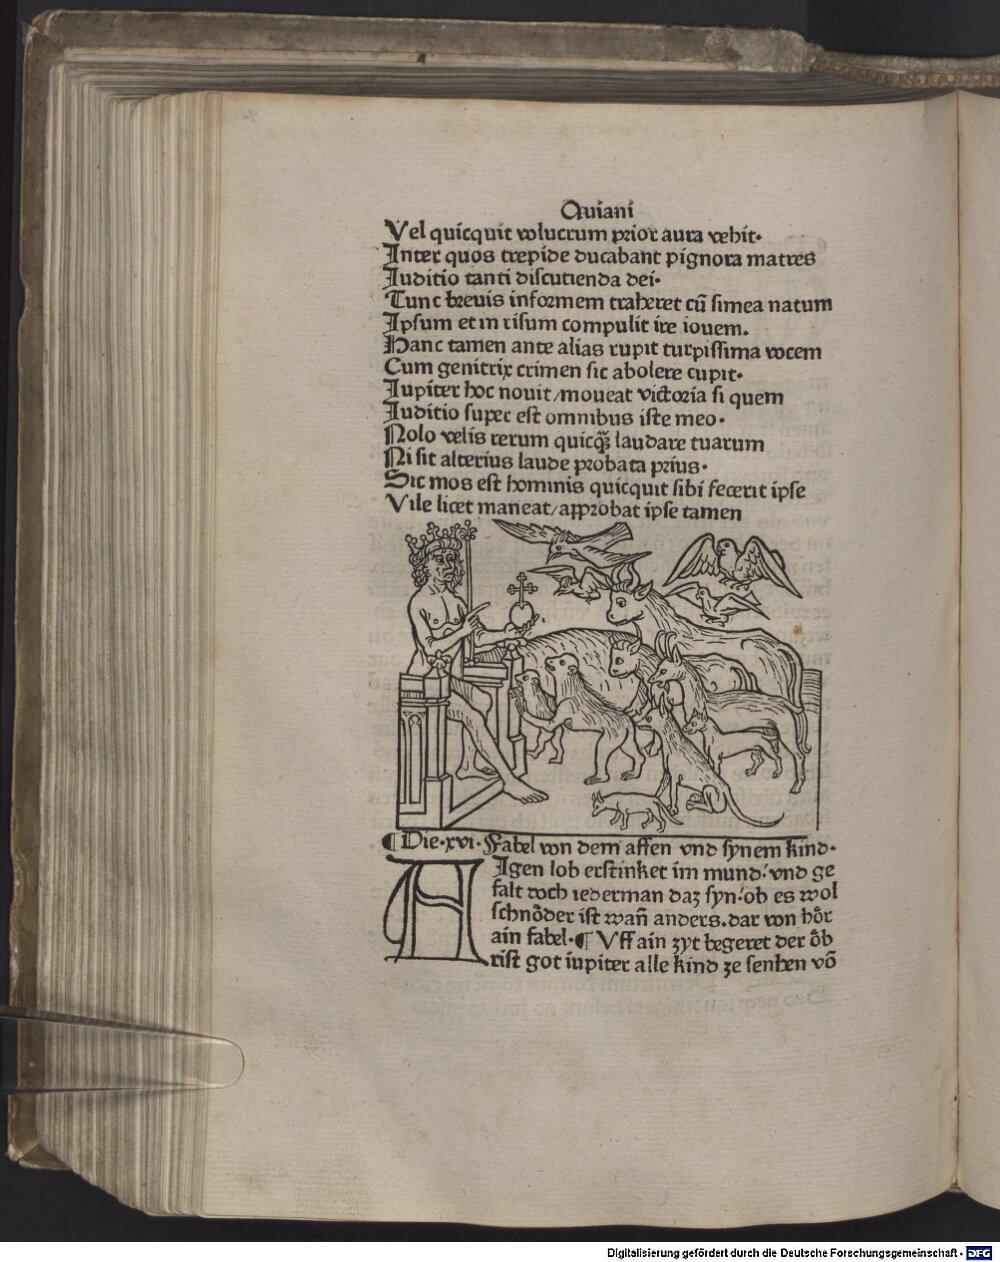 Auiani
Vel quicquit volucrum prior aura vehit·
Inter quos trepide ducabant pignora matres
Iuditio tanti discutienda dei·
Tunc breuis informem traheret cū simea natum
Ipsum et in risum compulit ire iouem.
Hanc tamen ante alias rupit turpissima vocem
Cum genitrix crimen sic abolere cupit·
Iupiter hoc nouit/moueat victoria si quem
Iuditio super est omnibus iste meo·
Nolo velis rerum quicqȝ laudare tuarum
Ni sit alterius laude probata prius·
Sic mos est hominis quicquit sibi fecerit ipse
Vile licet maneat/approbat ipse tamen
¶ Die·xvi·Fabel von dem affen vnd synem kind·
AIgen lob erstinket im mund/vnd ge
falt doch iederman daz syn/ob es wol
schnöder ist wañ anders.dar von hör
ain fabel·¶ Vff ain zyt begeret der öb
rist got iupiter alle kind ze senhen vō
Digitalisierung gefördert durch die Deutsche Forschungsgemeinschaft - DFG